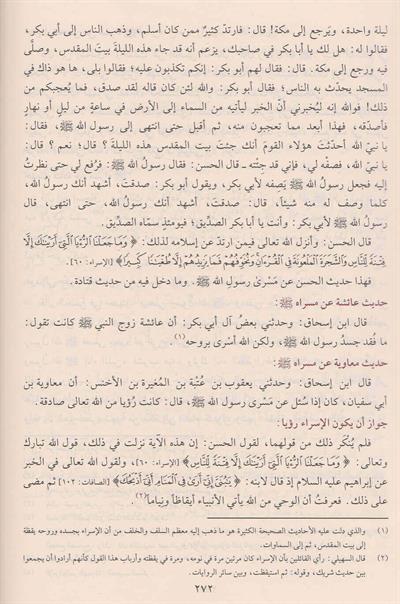 ليلة واحدة، ويَرجع إلى مكة! قال: فارتدّ كثيرٌ ممن كان أسلم، وذهب الناس إلى أبي بكر،
فقالوا له: هل لك يا أبا بكر في صاحبك، يزعم أنه قد جاء هذه الليلةَ بيتَ المقدس، وصلَّى
فيه ورجع إلى مكة. قال: فقال لهم أبو بكر: إنكم تكذبون عليه؛ فقالوا بلى، ها هو ذاك في
المسجد يحدّث به الناس؛ فقال أبو بكر: والله لئن كان قاله لقد صدق، فما يُعجبكم من
ذلك! فوالله إنه ليُخبرني أنّ الخبر ليأتيه من السماء إلى الأرض في ساعةٍ من ليل أو نهارٍ
فأصدّقه، فهذا أبعد مما تعجبون منه، ثم أقبل حتى انتهى إلى رسول الله ﷺ، فقال:
يا نبيّ الله أحدّثتَ هؤلاء القومَ أنك جئتَ بيت المقدس هذه الليلةَ؟ قال: نعم؟ قال:
يا نبيّ الله، فصفْه لي، فإني قد جئتُه ـ قال الحسن: فقال رسولُ الله ﷺ: فرُفع لي حتى نظرتُ
إليه فجعل رسولُ الله ﷺ يَصِفه لأبي بكر، ويقول أبو بكر: صدقتَ، أشهد أنك رسولُ الله،
كلما وصف له منه شيئاً، قال: صدقتَ، أشهد أنك رسولُ الله، حتى انتهى، قال
رسولُ الله ﷺ لأبي بكر: وأنت يا أبا بكر الصدّيقُ؛ فيومئذٍ سمّاه الصدّيق.
قال الحسن: وأنزل الله تعالى فيمن ارتدّ عن إسلامه لذلك: ﴿ وَمَا جَعَلْنَا الرُّءْيَا الَّتِي أَرَيْنَاكَ إِلَّا
فِتْنَةً لِلنَّاسِ وَالشَّجَرَةَ الْمَلْعُونَةَ فِي الْقُرْءَانِ وَنُخَوِّفُهُمْ فَمَا يَزِيدُهُمْ إِلَّا طُغْيَانًا كَبِيرًا ﴾ [الإسراء: ٦٠].
فهذا حديث الحسن عن مَسْرَى رسول الله ﷺ. وما دخل فيه من حديث قتادة.
حديث عائشة عن مسراه ﷺ:
قال ابن إسحاق: وحدثني بعضُ آل أبي بكر: أن عائشة زوج النبي ﷺ كانت تقول:
ما فُقد جسدُ رسول الله ﷺ، ولكن الله أسرى بروحه(١).
حديث معاوية عن مسراه ﷺ:
قال ابن إسحاق: وحدثني يعقوب بن عُتْبة بن المُغيرة بن الأخنس: أن معاوية بن
أبي سفيان، كان إذا سُئل عن مَسْرَى رسول الله ﷺ، قال: كانت رُؤيا من الله تعالى صادقة.
جواز أن يكون الإسراء رؤيا:
فلم يُنْكَر ذلك من قولهما، لقول الحسن: إن هذه الآية نزلت في ذلك، قول الله تبارك
وتعالى: ﴿ وَمَا جَعَلْنَا الرُّءْيَا الَّتِي أَرَيْنَاكَ إِلَّا فِتْنَةً لِلنَّاسِ ﴾ [الإسراء: ٦٠]، ولقول الله تعالى في الخبر
عن إبراهيم عليه السلام إذ قال لابنه: ﴿ يَبُنَيَّ إِنِّي أَرَى فِي الْمَنَامِ أَنِّي أَذْبَحُكَ ﴾ [الصافات: ١٠٢] ثم مضى
على ذلك. فعرفتُ أن الوحي من الله يأتي الأنبياء أيقاظاً ونِياماً(٢).
(١) والذي دلت عليه الأحاديث الصحيحة الكثيرة هو ما ذهب إليه معظم السلف والخلف من أن الإسراء بجسده وروحه يقظة
إلى بيت المقدس، ثم إلى السماوات.
(٢) قال السهيلي: رأي القائلين بأن الإسراء كان مرتين مرة في نومه، ومرة في يقظته وأرباب هذا القول كأنهم أرادوا أن يجمعوا
بين حديث شريك، وقوله: ثم استيقظت، وبين سائر الروايات.
٢٧٢